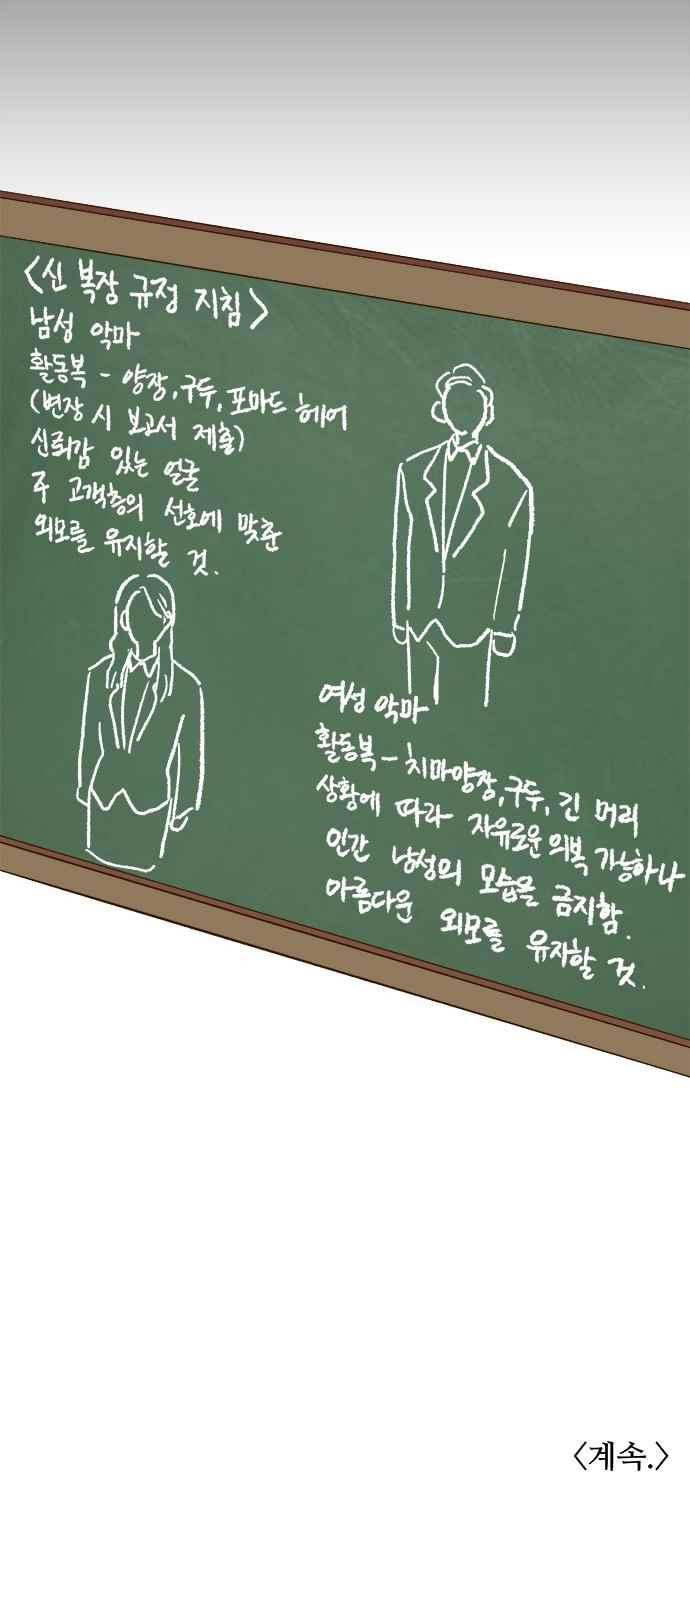 <신 복장 규정 지침>
남성 악마
활동복 - 양장, 구두, 포마드 헤어
(변장 시 보고서 제출)
신뢰감 있는 얼굴
주 고객층의 선호에 맞춘
외모를 유지할 것.
여성 악마
활동복 - 치마양장, 구두, 긴 머리
상황에 따라 자유로운 의복 가능하나
인간 남성의 모습을 금지함.
아름다운 외모를 유지할 것.
<계속.>